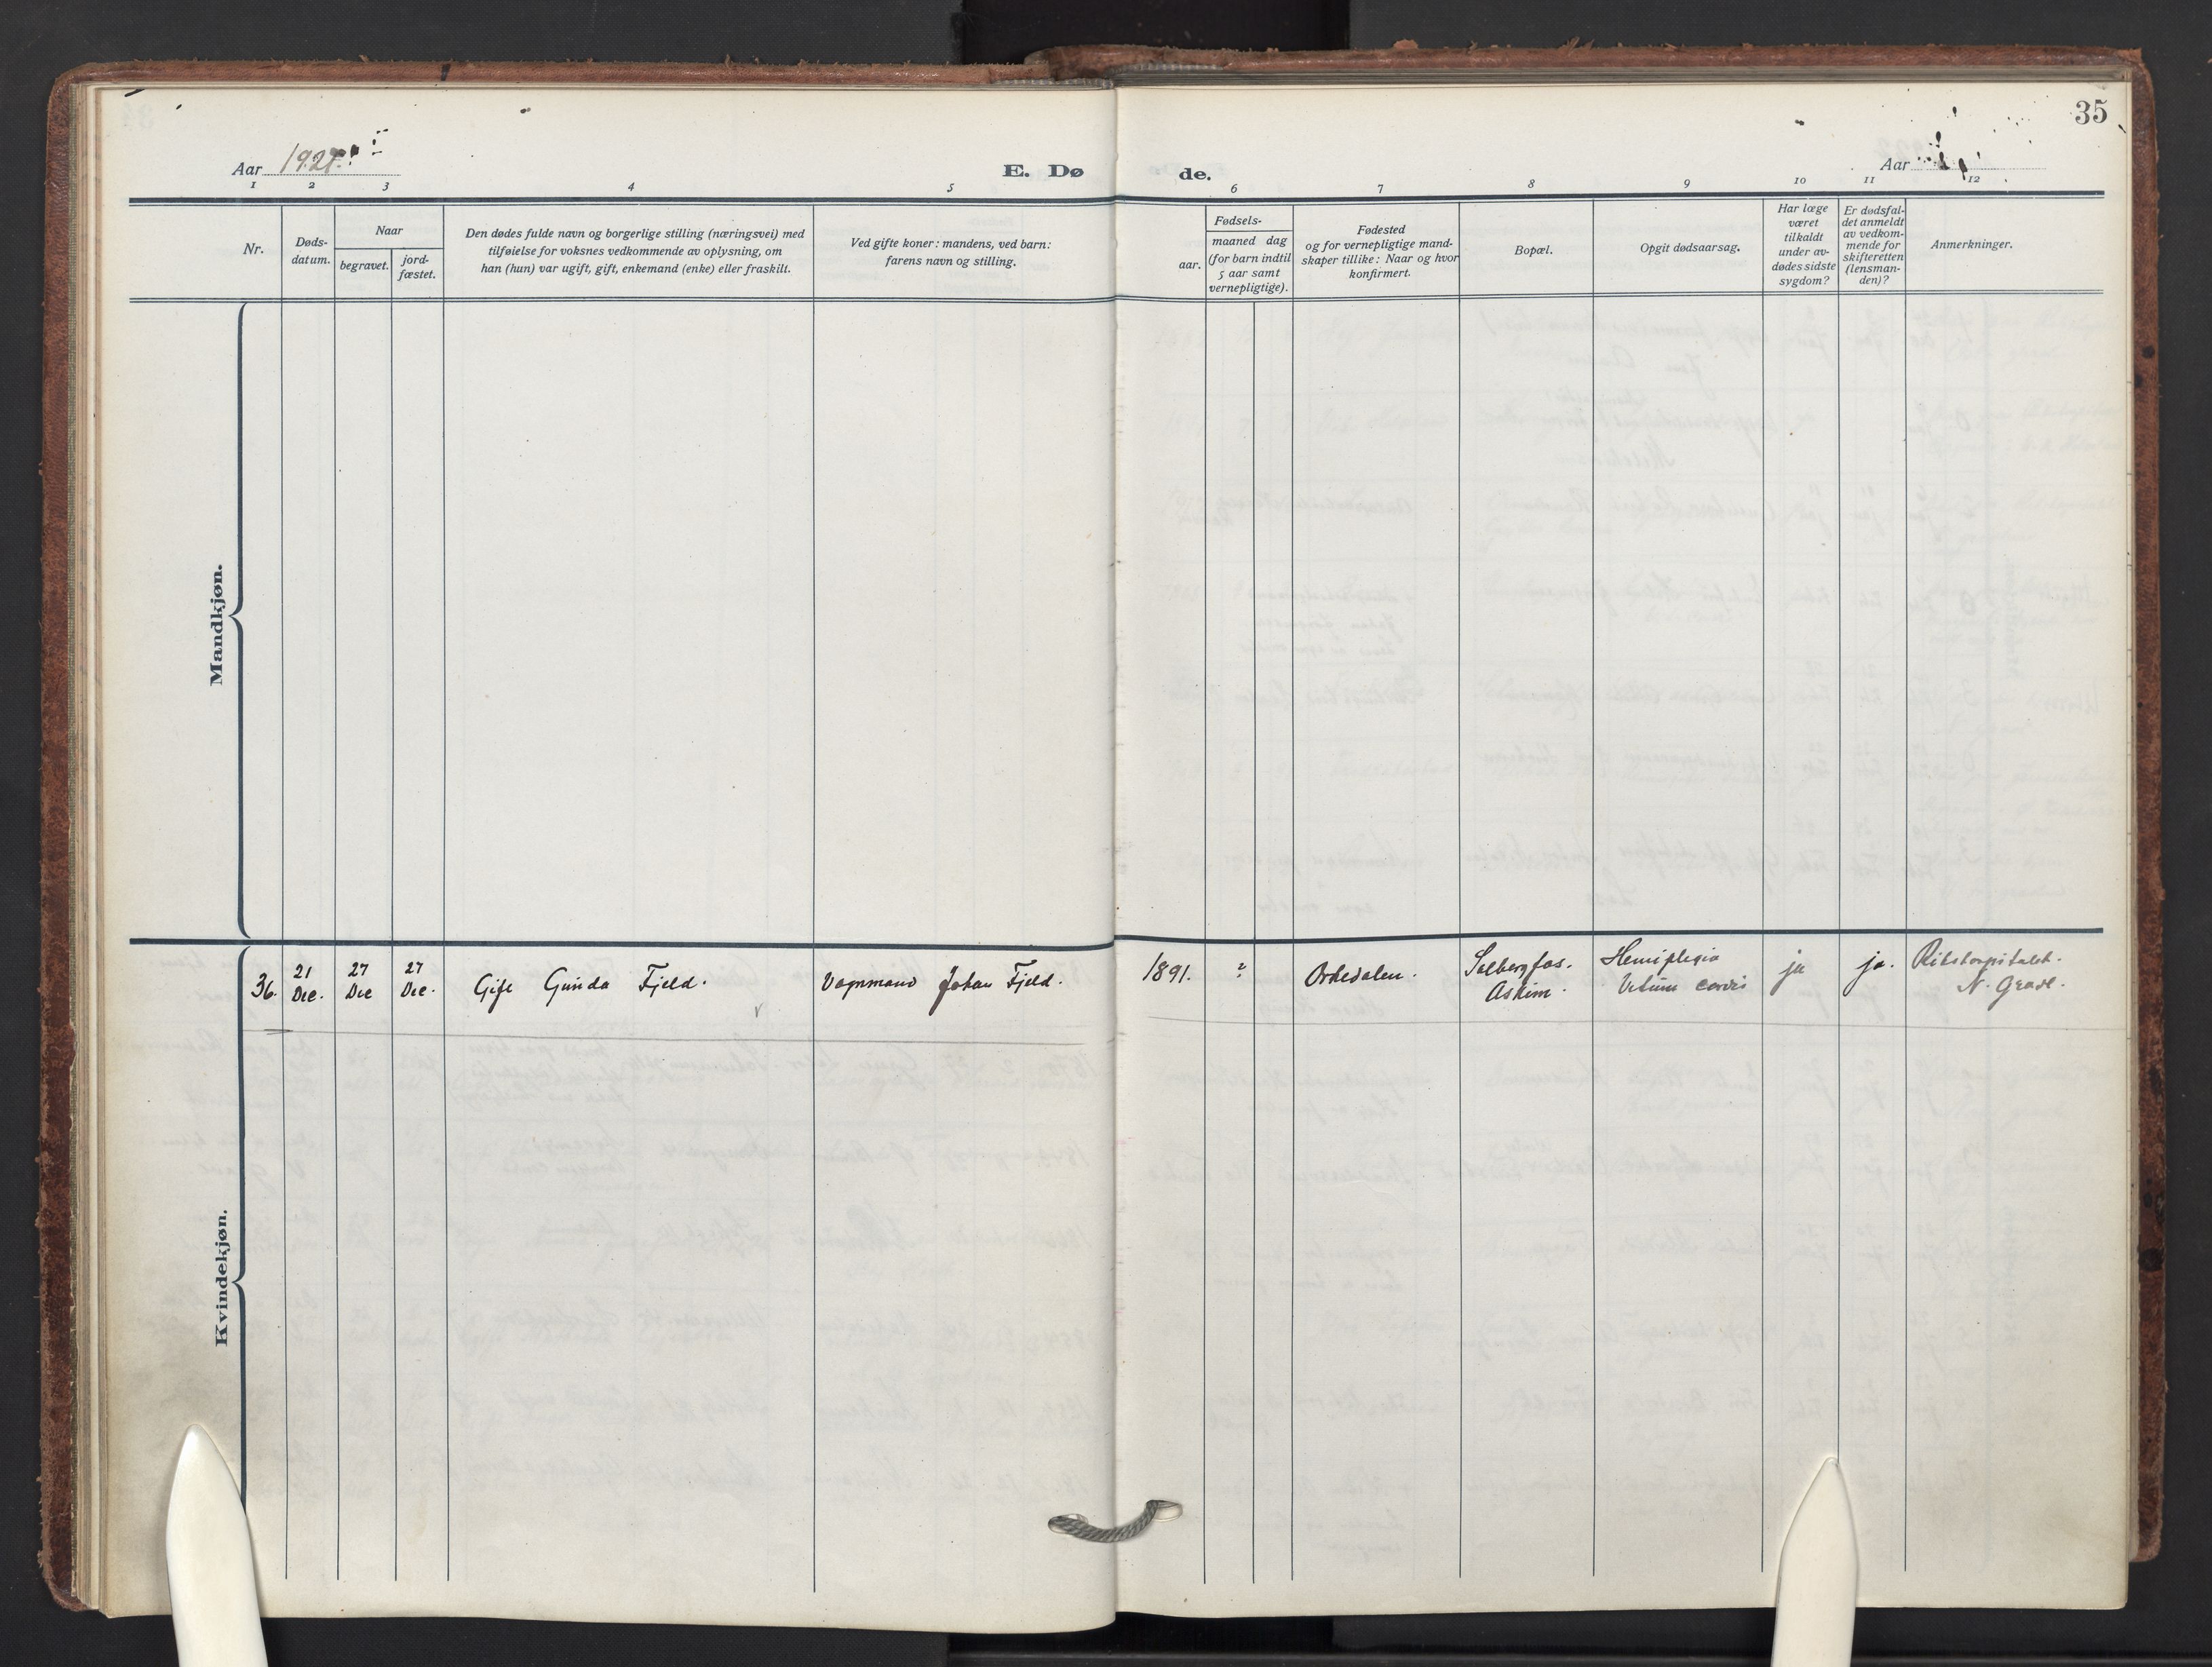 35
Aar 1927.
E. Dø
de.
Aar
1 2 3 4 5
6 7 8 9 10 11 12
Nr.
Døds-
datum.
Naar
begravet.
jord-
fæstet.
Den dødes fulde navn og borgerlige stilling (næringsvei) med
tilføielse for voksnes vedkommende av oplysning, om
han (hun) var ugift, gift, enkemand (enke) eller fraskilt.
Ved gifte koner: mandens, ved barn:
farens navn og stilling.
Fødsels-
aar.
maaned dag
(for barn indtil
5 aar samt
vernepligtige).
Fødested
og for vernepligtige mand-
skaper tillike: Naar og hvor
konfirmert.
Bopæl.
Opgit dødsaarsag.
Har læge
været
tilkaldt
under av-
dødes sidste
sygdom?
Er dødsfal-
det anmeldt
av vedkom-
mende for
skifteretten
(lensman-
den)?
Anmerkninger.
Mandkjøn.
Kvindekjøn.
36.
21
Dec.
27
Dec
27
Dec.
Gift Gunda Fjeld.
Vognmand Johan Fjeld.
1891.
?
Orkedalen.
Solbergfos.
Askim.
Hemiplegia
Vitium cordis
ja
ja.
Rikshospitalet.
N. Grave.